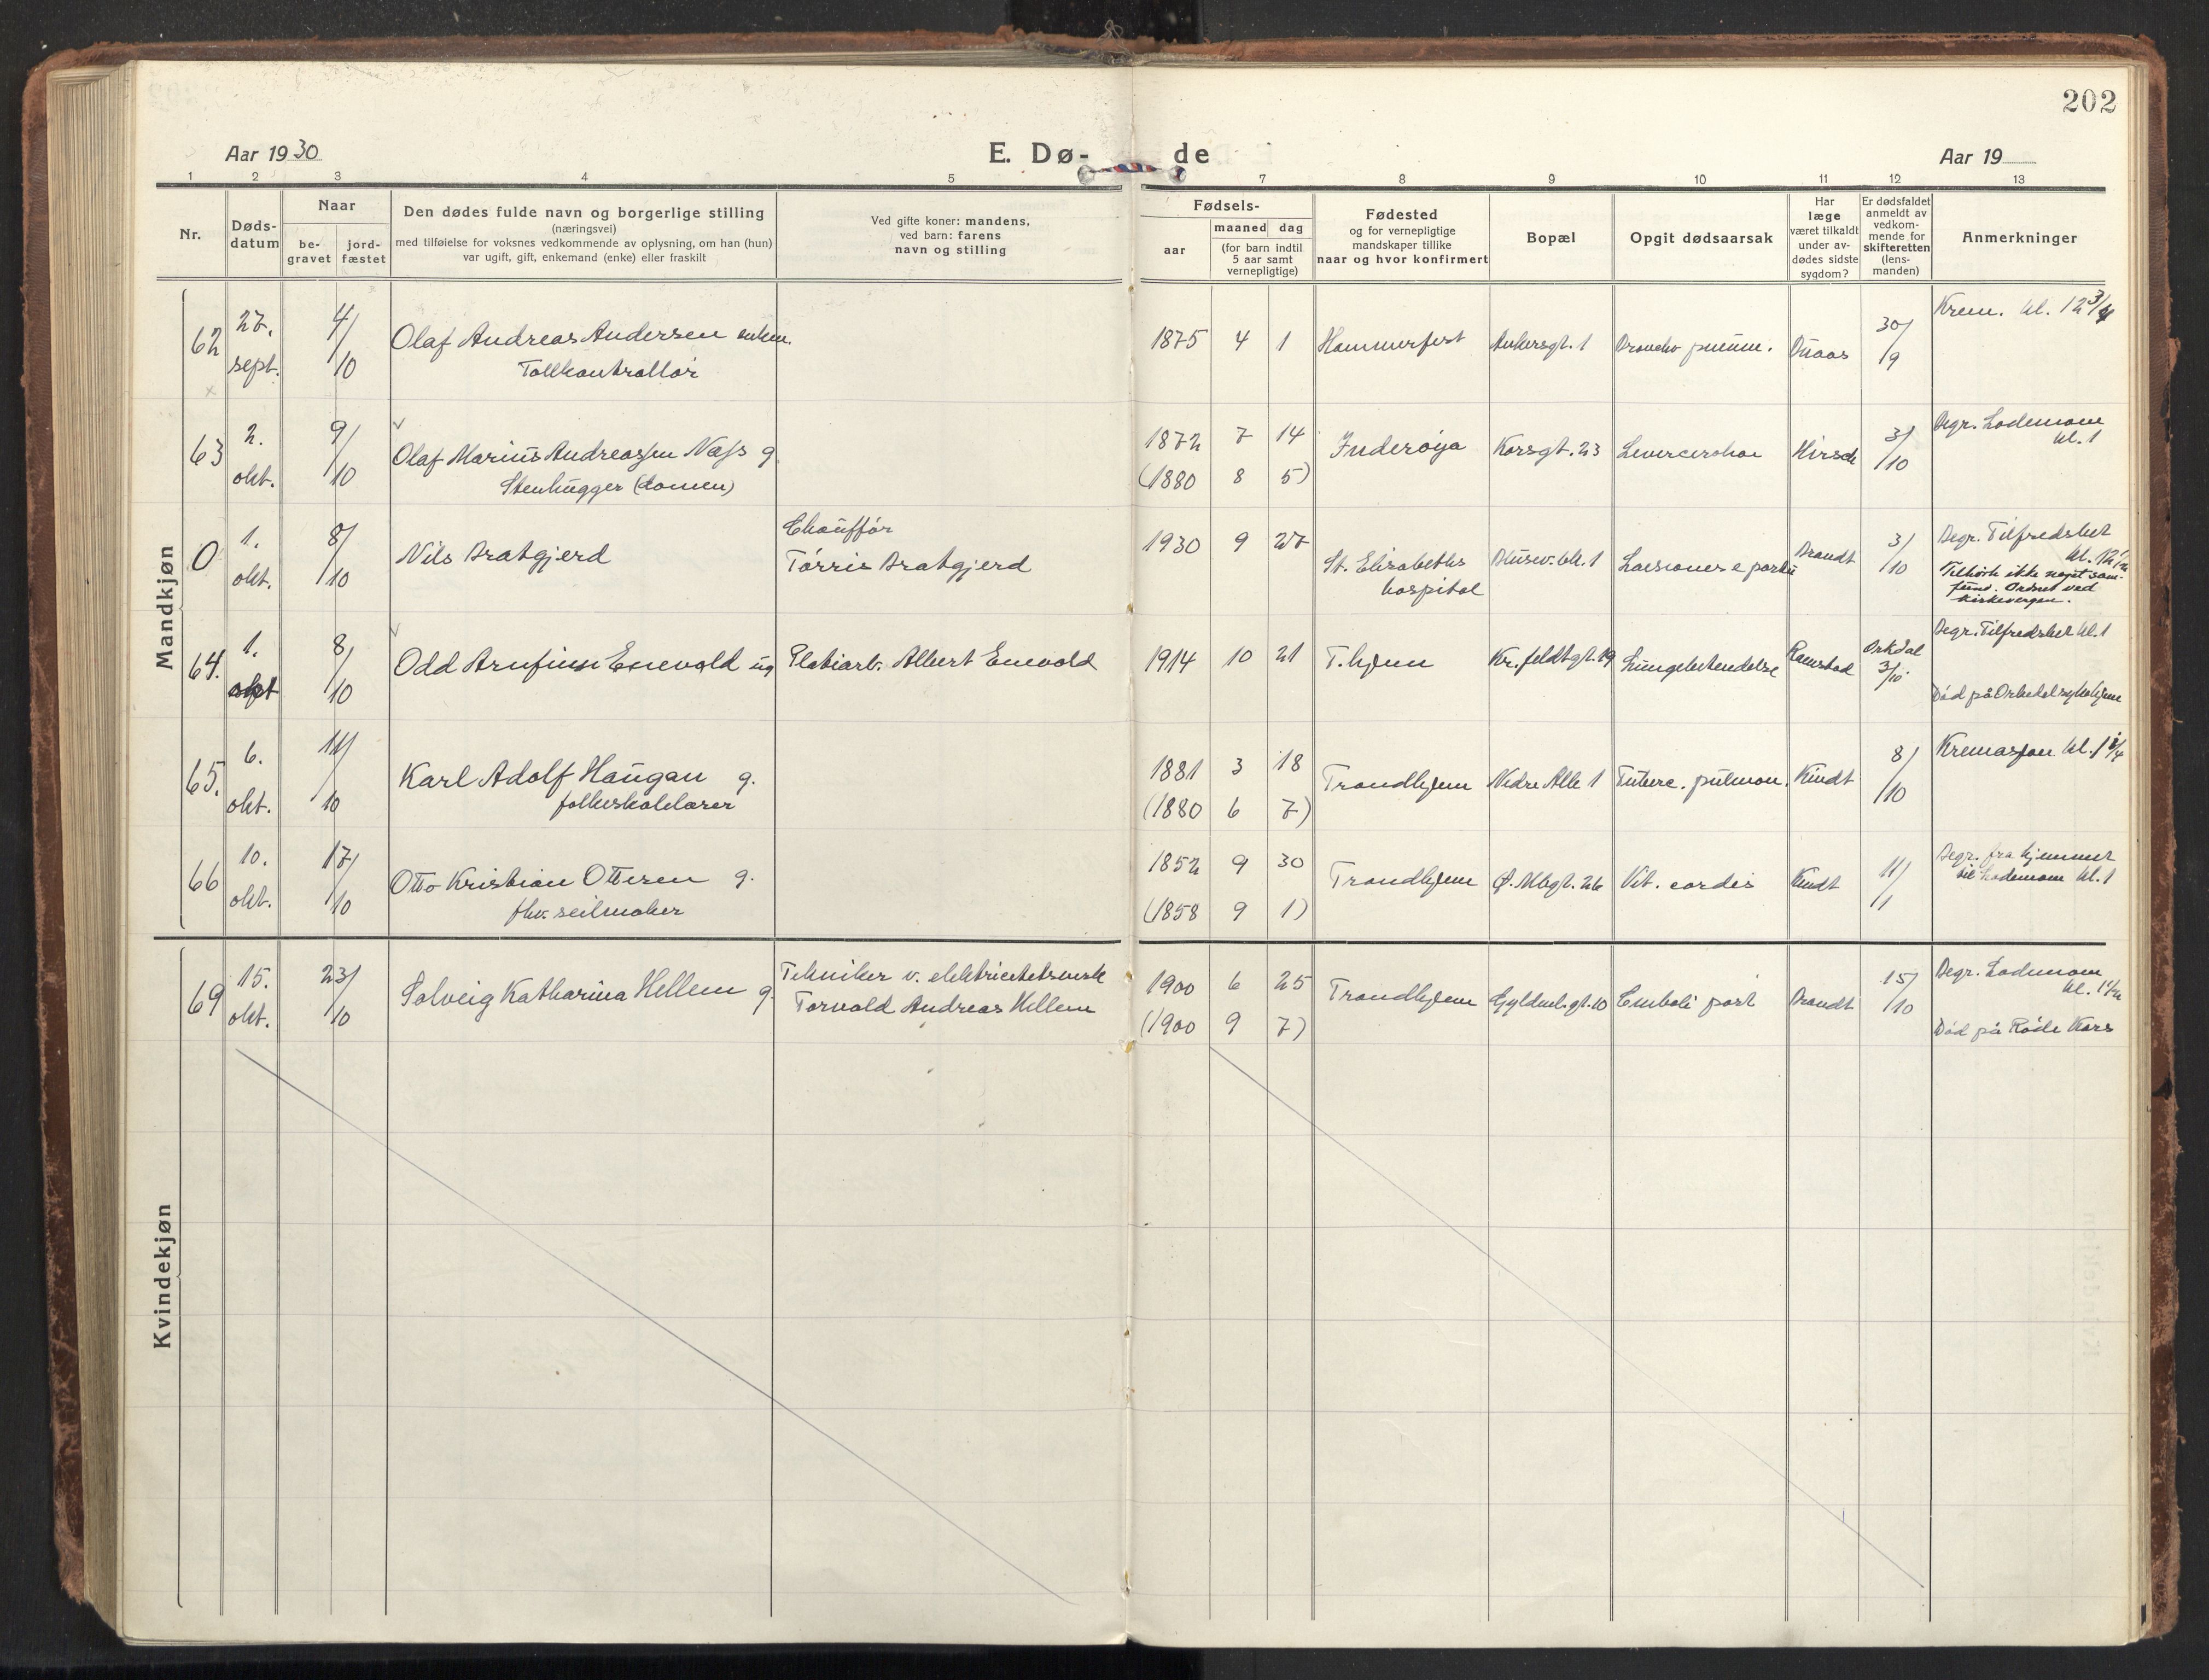 202
Aar 1930
E. Dø- de
Aar 19
1 2 3 4 5 7 8 9 10 11 12 13
Nr.
Døds-
datum
Naar
be-
gravet
jord-
fæstet
Den dødes fulde navn og borgerlige stilling
(næringsvei)
med tilføielse for voksnes vedkommende av oplysning, om han (hun)
var ugift, gift, enkemand (enke) eller fraskilt
Ved gifte koner: mandens,
ved barn: farens
navn og stilling
Fødsels-
aar
maaned dag
(for barn indtil
5 aar samt
vernepligtige)
Fødested
og for vernepligtige
mandskaper tillike
naar og hvor konfirmert
Bopæl
Opgit dødsaarsak
Har
læge
været tilkaldt
under av-
dødes sidste
sygdom?
Er dødsfaldet
anmeldt av
vedkom-
mende for
skifteretten
(lens-
manden)
Anmerkninger
Mandkjøn
62
27.
sept.
4/
10
Olaf Andreas Andersen enkem.
Tollkontrollör
1875 4 1
Hammerfest
Ankersgt. 1
pneum.
30/
9
Krem. kl. 12 3/4
63
2.
okt.
9/
10
Olaf Marius Andreassen Næss g
Stenhugger (domen)
1872 7 14
(1880 8 5)
Inderøya
Korsgt. 23
Levercirrhose
Hirsch
3/
10
Begr. Lademoen
kl. 1
0
1.
okt.
8/
10
Nils Bratgjerd
Chaufför
Törris Bratgjerd
1930 9 27
St. Elisabeths
hospital
Læsiones e partu
Brandt
3/
10
Begr. Tilfredshet
kl. 12 1/2
Tilhörte ikke noget sam-
fund. Ordnet ved
kirkevergen.
64.
1.
okt
8/
10
Odd Arnfinn Enevold ug
Platiarb. Albert Enevold
1914 10 21
T.hjem
Kr.feldtgt. 19
Lungebetendelse
Ramstad
Orkdal
3/10
Begr. Tilfredshet kl. 1
Död på Orkedal sykehjem
65.
6.
okt.
11/
10
Karl Adolf Haugan g.
folkeskolelærer
1881 3 18
(1880 6 7)
Trondhjem
Nedre Alle 1
Tuberc. pulmon.
Kindt
8/
10
Kremasjon kl. 1 1/4
66
10.
okt.
17/
10
Otto Kristian Ottesen g.
fhv. seilmaker
1852 9 30
(1858 9 1)
Trondhjem
Ø. Mbgt. 26
Vit. cordis
Kindt
11/
1
Begr. fra hjemmet
til Lademoen kl. 1
Kvindekjøn
69
15.
okt.
23/
10
Solveig Katharina Hellem g.
Tekniker v. elektricitetsverk
Torvald Andreas Hellem
1900 6 25
(1900 9 7)
Trondhjem
Gyldenl.gt. 10
Emboli post
Brandt
15/
10
Begr. Lademoen
kl. 1 1/2
Död på Röde Kors